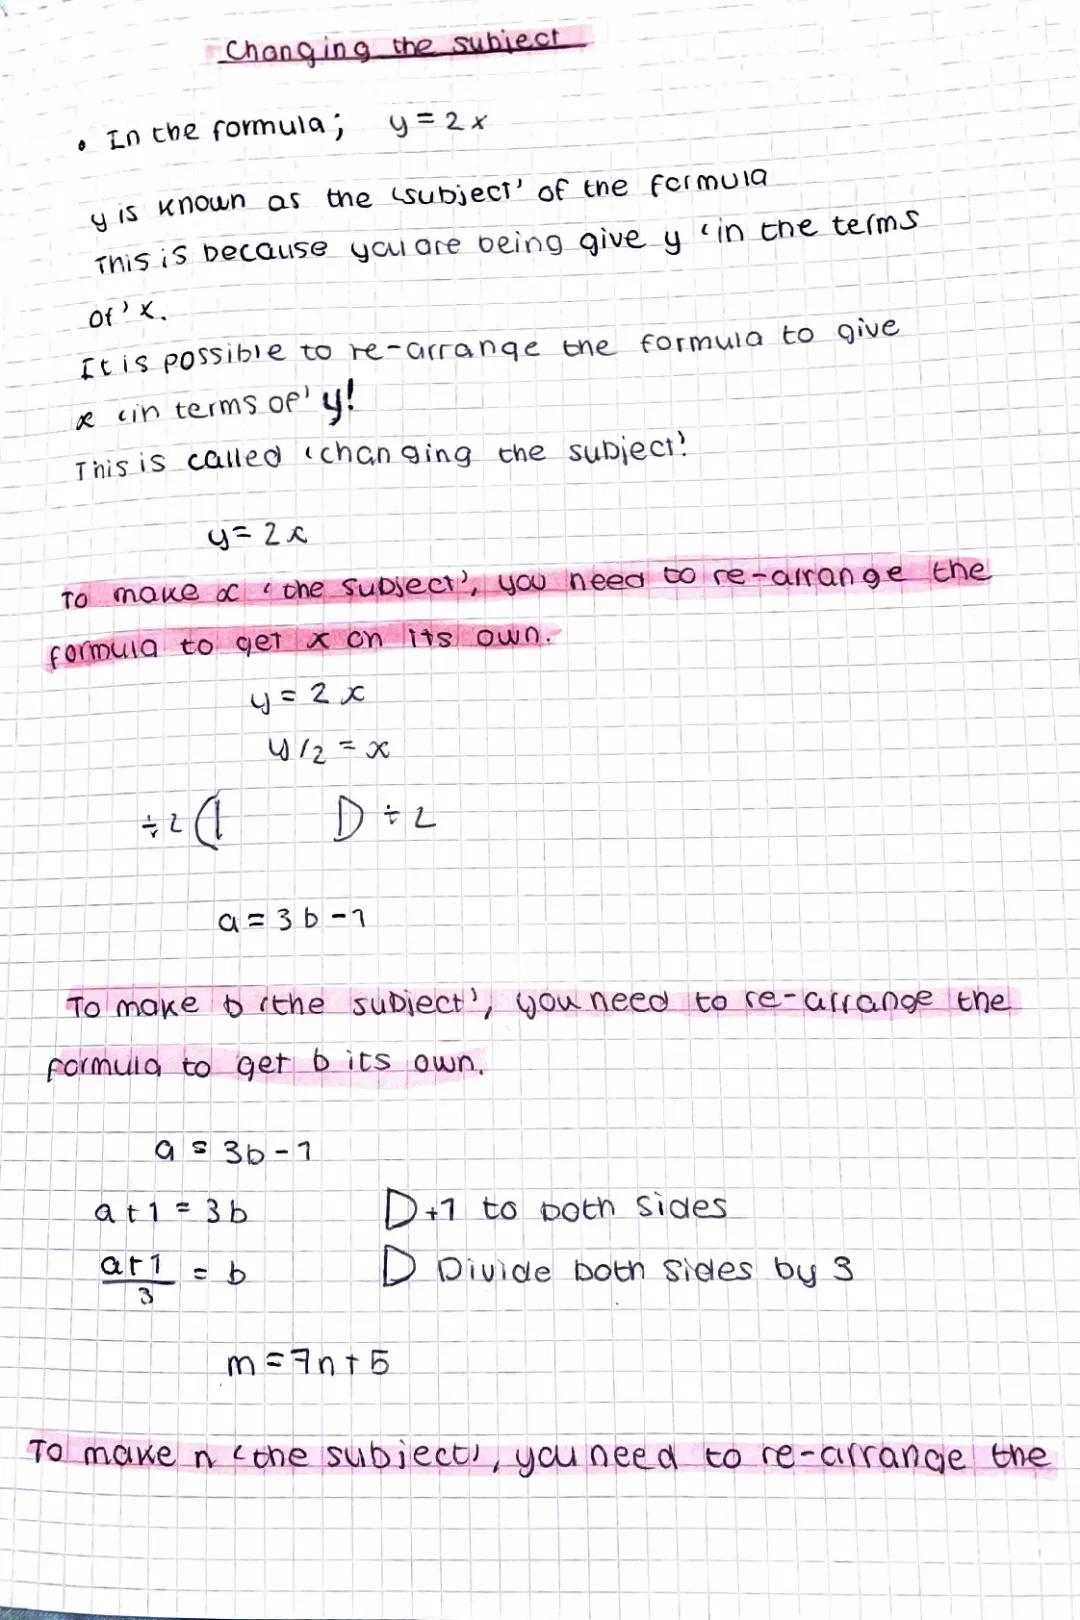 Changing the subject
• In the formula; y = 2x
y is known as the 'subject' of the formula
This is because you are being give y 'in the terms
of' x.
It is possible to re-arrange the formula to give
x 'in terms of' y!
This is called 'changing the subject'
y = 2x
To make x 'the subject', you need to re-arrange the
formula to get x on its own.
y = 2x
y/2 = x
÷2 ÷2
a = 3b - 1
To make b 'the subject', you need to re-arrange the
formula to get b its own.
a = 3b - 1
a + 1 = 3b +1 to both sides
a+1/3 = b Divide both sides by 3
m = 7n + 5
To make n 'the subject', you need to re-arrange the